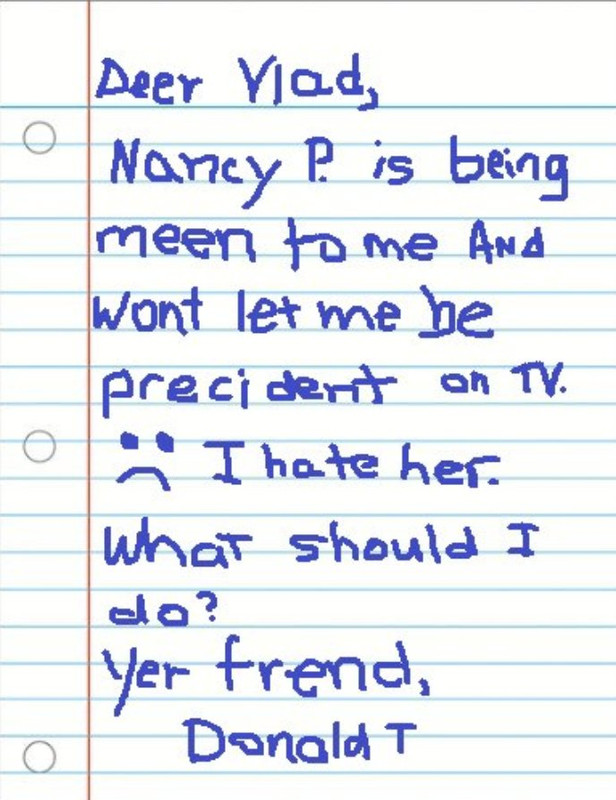 Deer Vlad,
Nancy P. is being
meen to me And
wont let me be
precident on TV.
I hate her.
What should I
do?
Yer frend,
Donald T